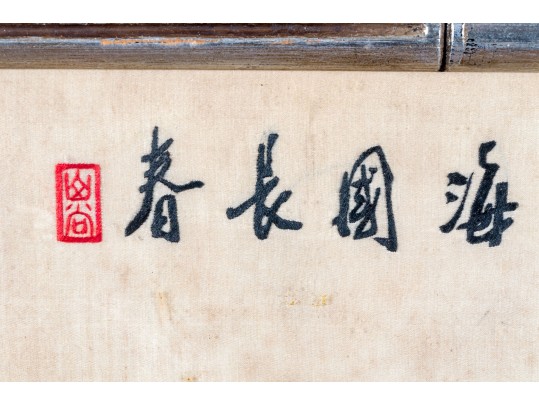 海國長春